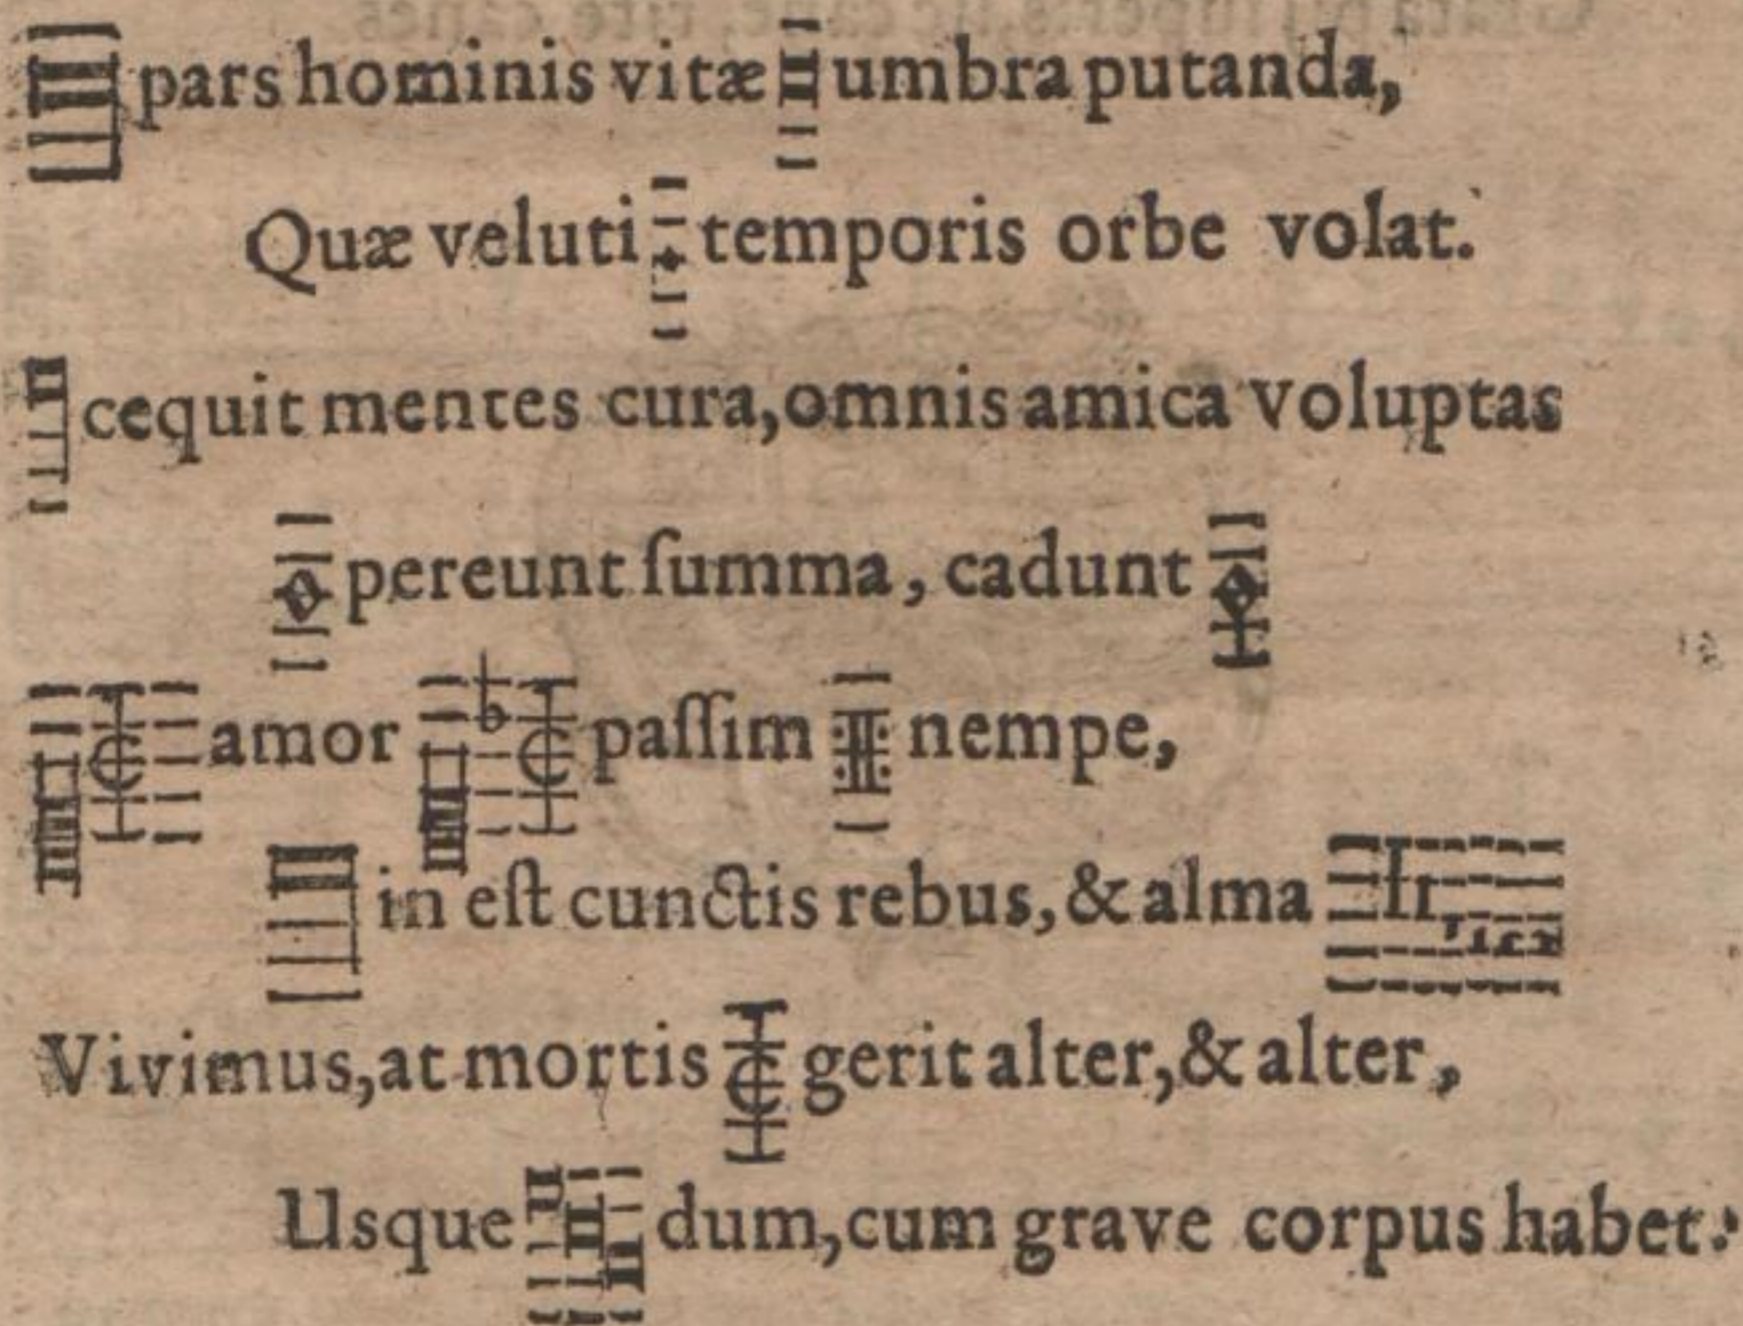 pars hominis vitæ umbra putanda,
Quæ veluti temporis orbe volat.
cequit mentes cura, omnis amica voluptas
pereunt ſumma, cadunt
amor paſſim nempe,
in eſt cunctis rebus, & alma
Vivimus, at mortis gerit alter, & alter,
Usque dum, cum grave corpus habet.